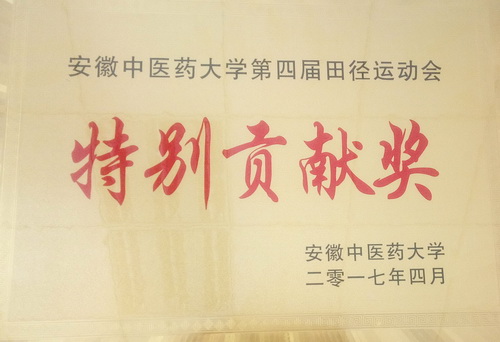 安徽中医药大学第四届田径运动会
特别贡献奖
安徽中医药大学
二零一七年四月